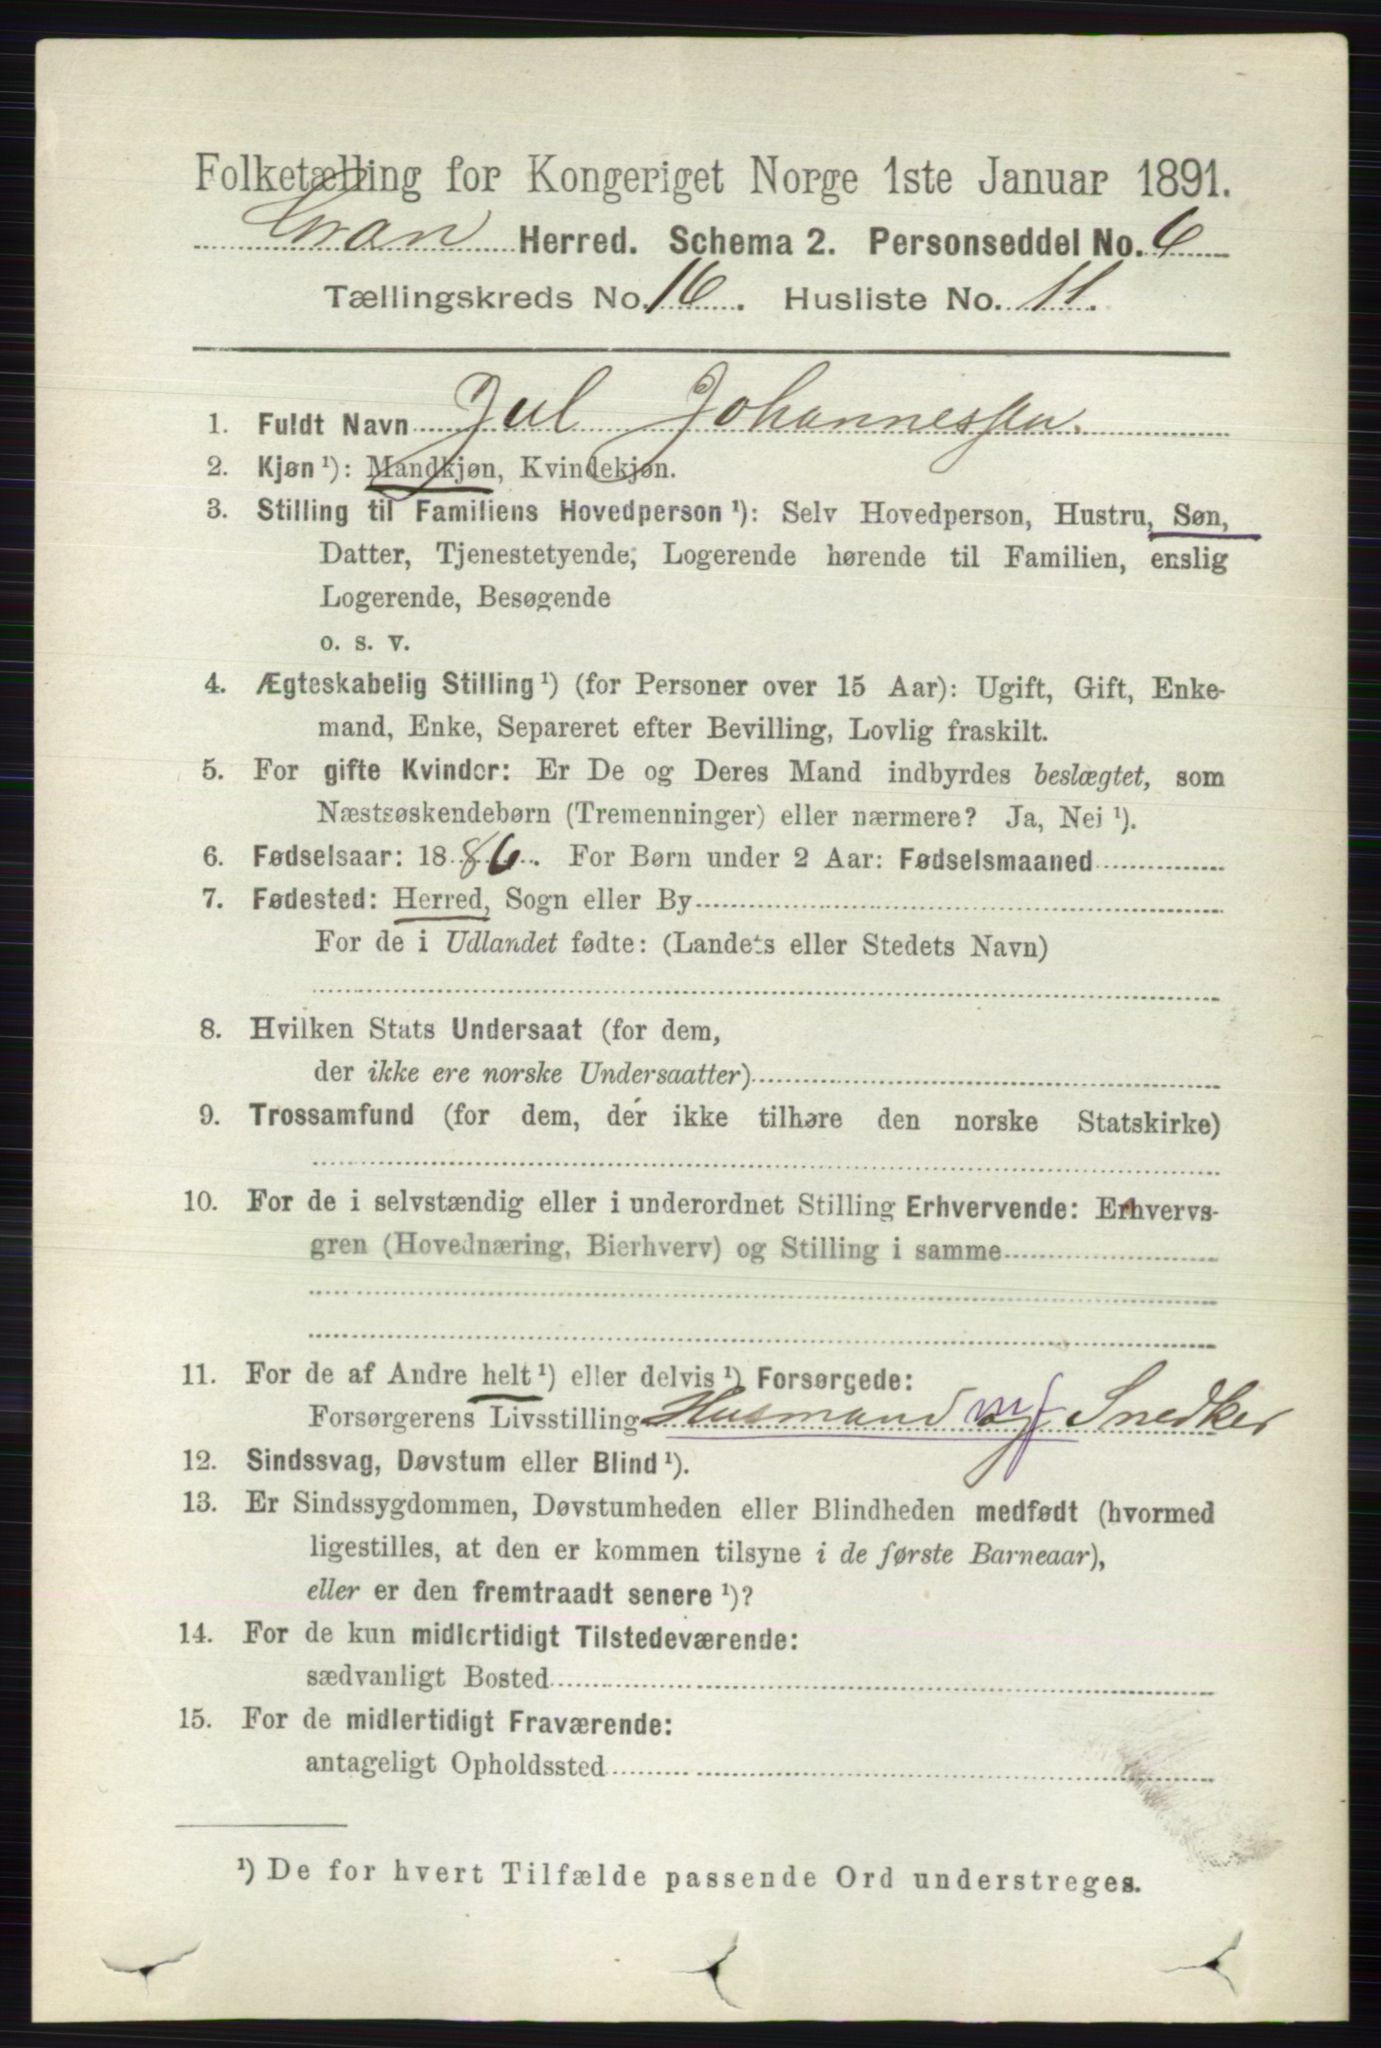 Folketælling for Kongeriget Norge 1ste Januar 1891.
Gran Herred. Schema 2. Personseddel No. 6
Tællingskreds No. 16. Husliste No. 11.
1. Fuldt Navn Jul Johannessen.
2. Kjøn ¹): Mandkjøn, Kvindekjøn.
3. Stilling til Familiens Hovedperson ¹): Selv Hovedperson, Hustru, Søn,
Datter, Tjenestetyende, Logerende hørende til Familien, enslig
Logerende, Besøgende
o. s. v.
4. Ægteskabelig Stilling ¹) (for Personer over 15 Aar): Ugift, Gift, Enke-
mand, Enke, Separeret efter Bevilling, Lovlig fraskilt.
5. For gifte Kvinder: Er De og Deres Mand indbyrdes beslægtet, som
Næstsøskendebørn (Tremenninger) eller nærmere? Ja, Nei ¹).
6. Fødselsaar: 1886. For Børn under 2 Aar: Fødselsmaaned
7. Fødested: Herred, Sogn eller By
For de i Udlandet fødte: (Landets eller Stedets Navn)
8. Hvilken Stats Undersaat (for dem,
der ikke ere norske Undersaatter)
9. Trossamfund (for dem, der ikke tilhøre den norske Statskirke)
10. For de i selvstændig eller i underordnet Stilling Erhvervende: Erhvervs-
gren (Hovednæring, Bierhverv) og Stilling i samme
11. For de af Andre helt ¹) eller delvis ¹) Forsørgede:
Forsørgerens Livsstilling Husmand og Snedker
12. Sindssvag, Døvstum eller Blind ¹).
13. Er Sindssygdommen, Døvstumheden eller Blindheden medfødt (hvormed
ligestilles, at den er kommen tilsyne i de første Barneaar),
eller er den fremtraadt senere ¹)?
14. For de kun midlertidigt Tilstedeværende:
sædvanligt Bosted
15. For de midlertidigt Fraværende:
antageligt Opholdssted
¹) De for hvert Tilfælde passende Ord understreges.